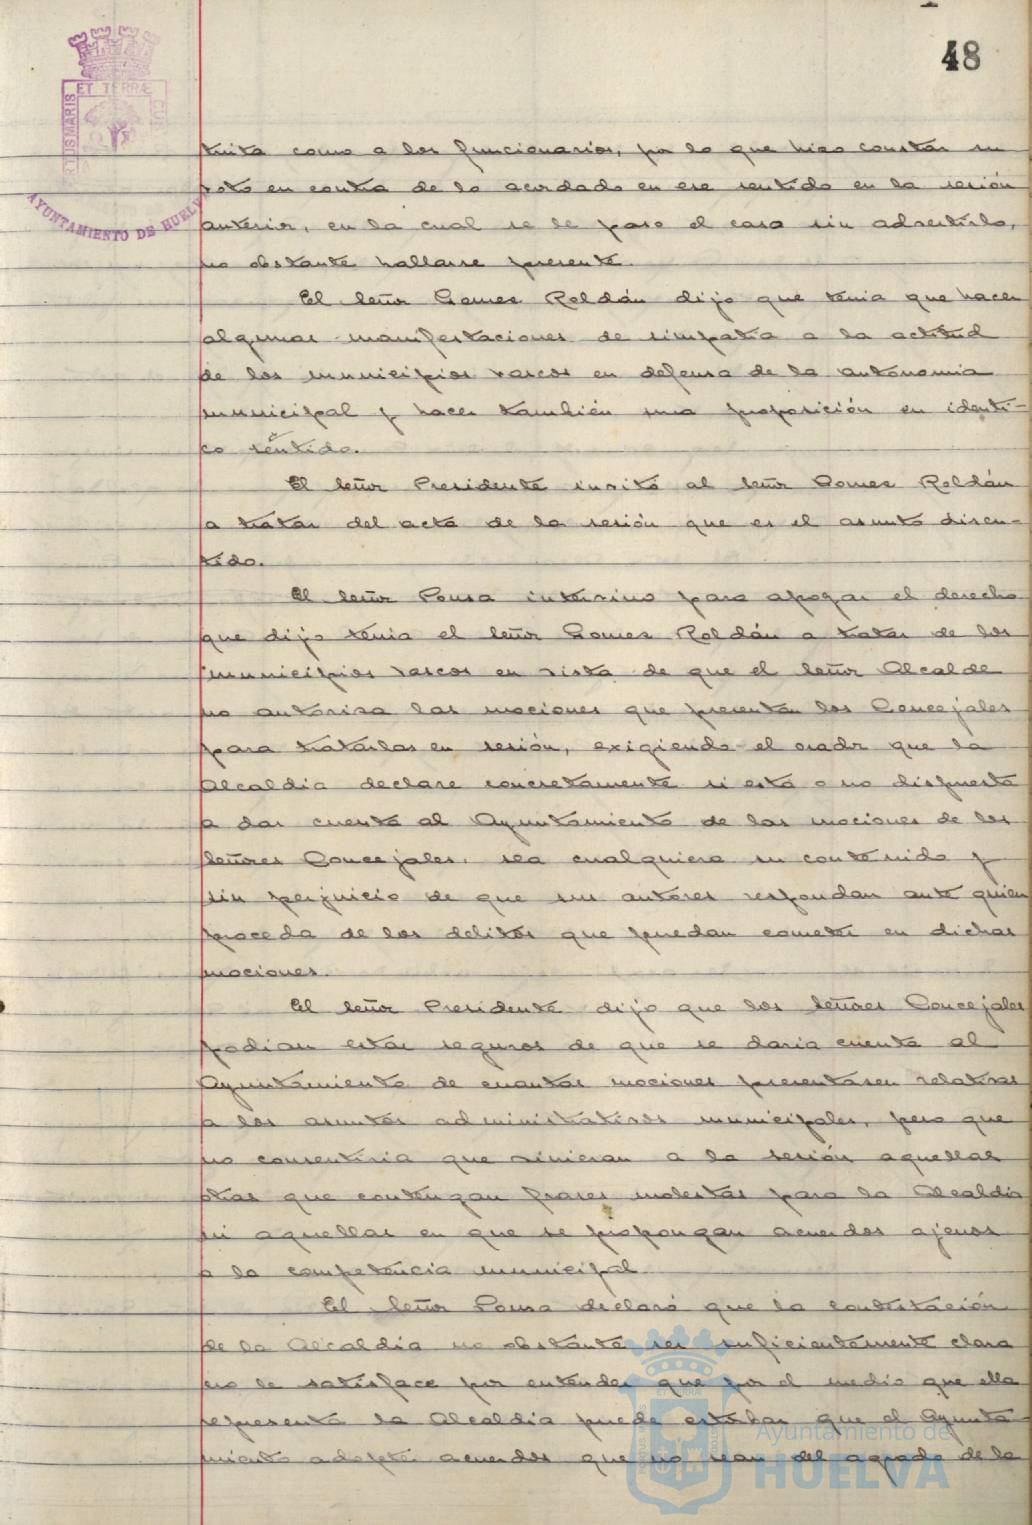 48
ET TERRÆ
PORTUS MARIS
AYUNTAMIENTO DE HUELVA
tuita como a los funcionarios, por lo que hizo constar su
voto en contra de lo acordado en ese sentido en la sesión
anterior, en la cual se le paso el caso sin advertirlo,
no obstante hallarse presente.
El señor Gomez Roldán dijo que tenia que hacer
algunas manifestaciones de simpatia a la actitud
de los municipios vascos en defensa de la autonomia
municipal y hacer también una proposición en identi-
co sentido.
El señor Presidente invitó al señor Gomez Roldán
a tratar del acta de la sesión que es el asunto discu-
tido.
El señor Ponza intervino para apoyar el derecho
que dijo tenia el señor Gomez Roldán a tratar de los
municipios vascos en vista de que el señor Alcalde
no autoriza las mociones que presentan los Concejales
para tratarlas en sesión, exigiendo el orador que la
Alcaldia declare concretamente si está o no dispuesta
a dar cuenta al Ayuntamiento de las mociones de los
señores Concejales, sea cualquiera su contenido y
sin perjuicio de que sus autores respondan ante quien
proceda de los delitos que puedan cometer en dichas
mociones.
El señor Presidente dijo que los señores Concejales
podian estar seguros de que se daria cuenta al
Ayuntamiento de cuantas mociones presentasen relativas
a los asuntos administrativos municipales, pero que
no consentiria que vinieran a la sesión aquellas
otras que contengan frases molestas para la Alcaldia
ni aquellas en que se propongan acuerdos ajenos
a la competencia municipal.
El señor Ponza declaró que la contestación
de la Alcaldia no obstante ser suficientemente clara
no le satisface por entender que por el medio que ella
representa la Alcaldia puede estorbar que el Ayunta-
miento adopte acuerdos que no sean del agrado de la
Ayuntamiento de
HUELVA